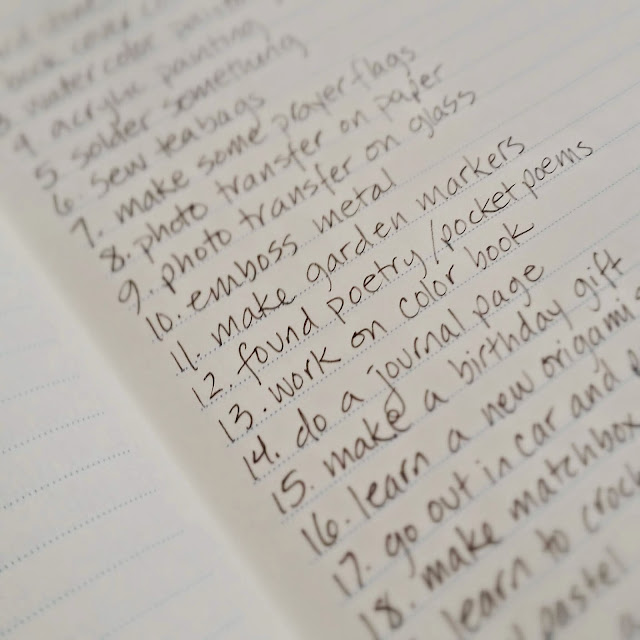 color
3 watercolor
4 acrylic painting
5 solder something
6. sew teabags
7. make some prayer flags
8. photo transfer on paper
9. photo transfer on glass
10. emboss metal
11. make garden markers
12. found poetry/pocket poems
13. work on color book
14. do a journal page
15. make a birthday gift
16. learn a new origami
17. go out in car and
18. make matchbox
learn to
pastel